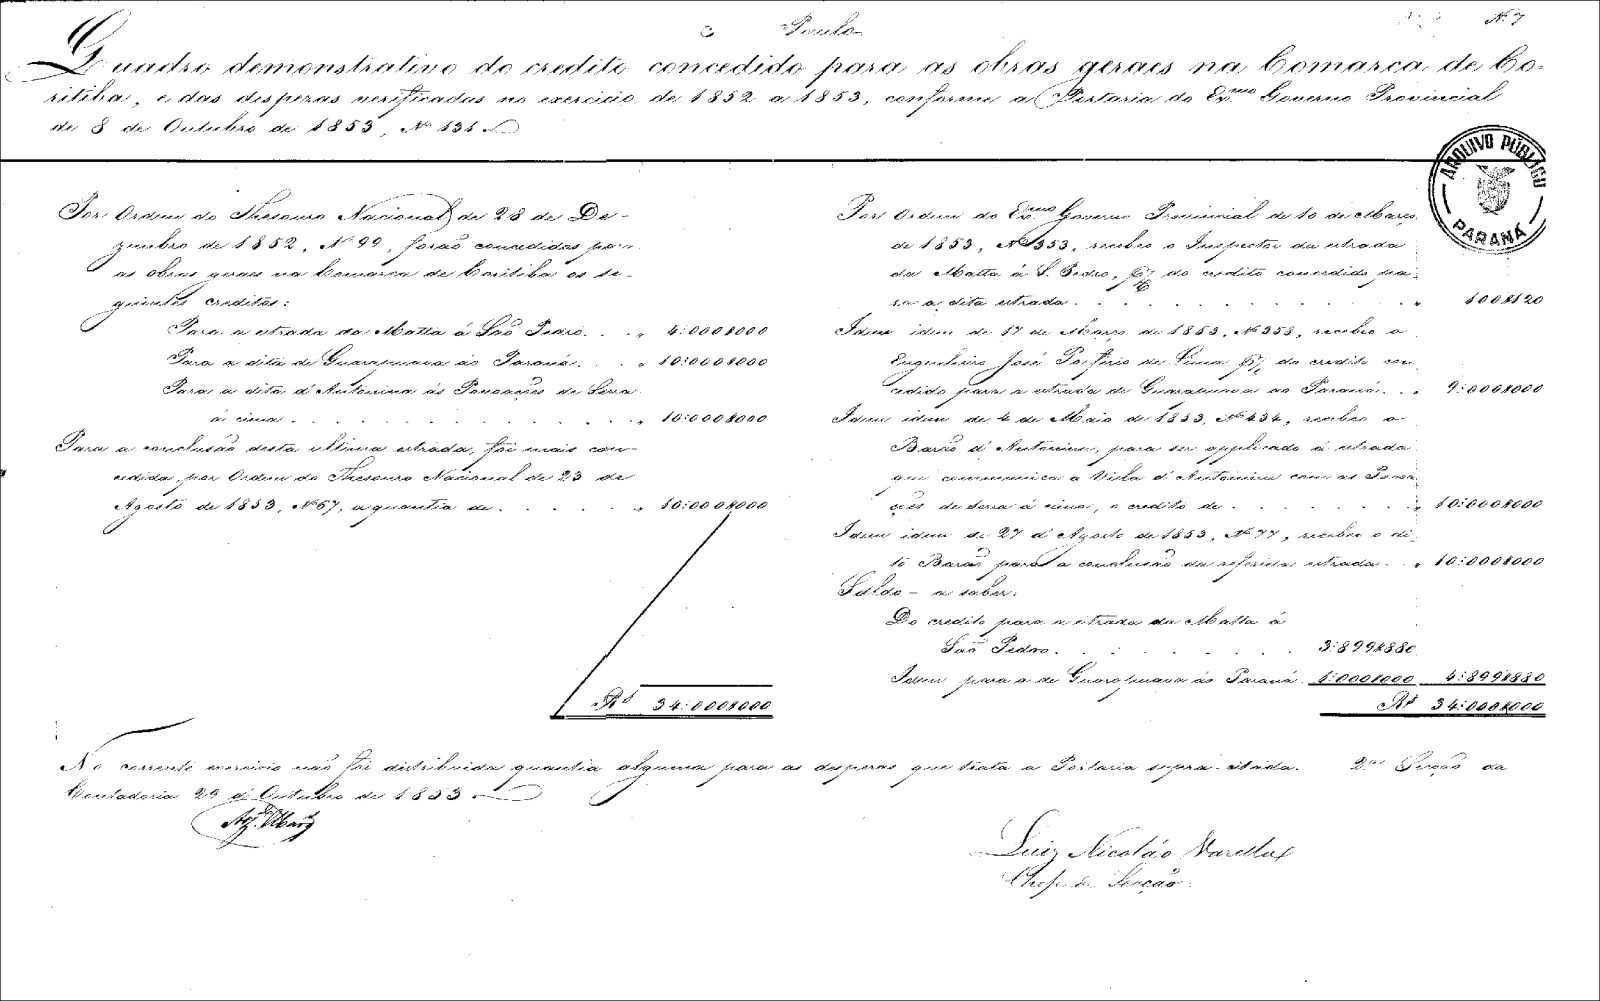 S. Paulo
N. 7
Quadro demonstrativo do credito concedido para as obras geraes na Comarca de Co-
ritiba, e das despezas verificadas no exercicio de 1852 a 1853, conforme a Portaria do Exmo Governo Provincial
de 8 de Outubro de 1853, No 131.
ARQUIVO PÚBLICO
PARANÁ
Por Ordem do Thesouro Nacional de 28 de De-
zembro de 1852, No 99, forão concedidos para
as obras geraes na Comarca de Coritiba os se-
guintes creditos:
Para a estrada da Matta á São Pedro. . . " 4:000$000
Para a dita de Guarapuava ao Paraná. . . . " 10:000$000
Para a dita d'Antonina ás Povoações de Serra
á cima . . . . . . . . . . . . " 10:000$000
Para a conclusão desta ultima estrada, foi mais con-
cedida, por Ordem do Thesouro Nacional de 23 de
Agosto de 1853, No 67, a quantia de . . . . . " 10:000$000
Rs 34:000$000
Por Ordem do Exmo Governo Provincial de 10 de Março
de 1853, No 353, recebeo o Inspector da estrada
da Matta á S. Pedro, p/c do credito concedido pa-
ra a dita estrada . . . . . . . . . . . " 100$120
Idem idem de 17 de Março de 1853, No 358, recebeo o
Engenheiro José Porfirio de Lima, p/c do credito con-
cedido para a estrada de Guarapuava ao Paraná. . . " 9:000$000
Idem idem de 4 de Maio de 1853, No 434, recebeo o
Barão d'Antonina, para ser applicado á estrada
que communica a Villa d'Antonina com as Povoa-
ções de Serra á cima, o credito de . . . . . . . " 10:000$000
Idem idem de 27 d'Agosto de 1853, No 77, recebeo o di-
to Barão para a conclusão da referida estrada. . . " 10:000$000
Saldo - a saber:
Do credito para a estrada da Matta á
São Pedro. . . . . . . . . . 3:899$880
Idem para a de Guarapuava ao Paraná. 1:000$000 4:899$880
Rs 34:000$000
No corrente exercicio não foi distribuida quantia alguma para as despezas que trata a Portaria supra-citada. 2a Secção da
Contadoria 29 d'Outubro de 1853
Luiz Nicoláo Varella
Chefe da Secção.